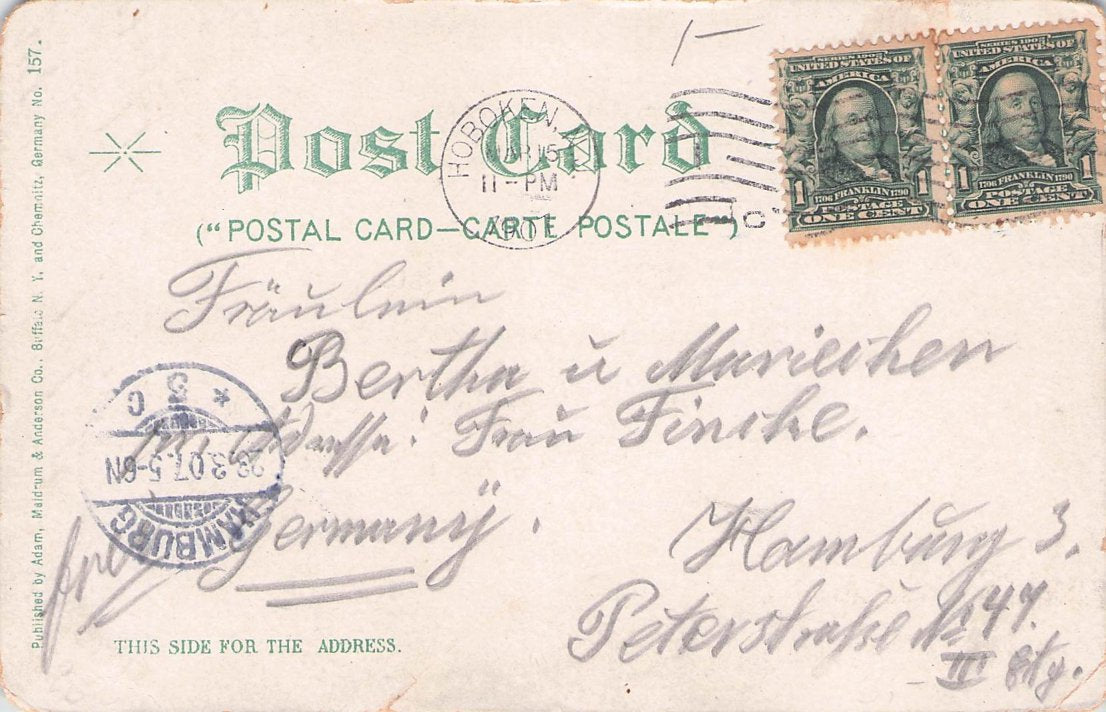 Post Card
("POSTAL CARD—CARTE POSTALE")
HOBOKEN, N.J.
MAR 15
11-PM
1907
SERIES 1902
UNITED STATES OF
AMERICA
1 1
1706 FRANKLIN 1790
POSTAGE
ONE CENT
SERIES 1902
UNITED STATES OF
AMERICA
1 1
1706 FRANKLIN 1790
POSTAGE
ONE CENT
Fräulein
Bertha u Mariechen
Adresse: Frau Fincke.
Germany.
Hamburg 3.
Peterstraße № 47.
II Etg.
HAMBURG
23.3.07.5-6N
* 3 C
THIS SIDE FOR THE ADDRESS.
Published by Adam, Meldrum & Anderson Co., Buffalo N. Y. and Chemnitz, Germany No. 157.